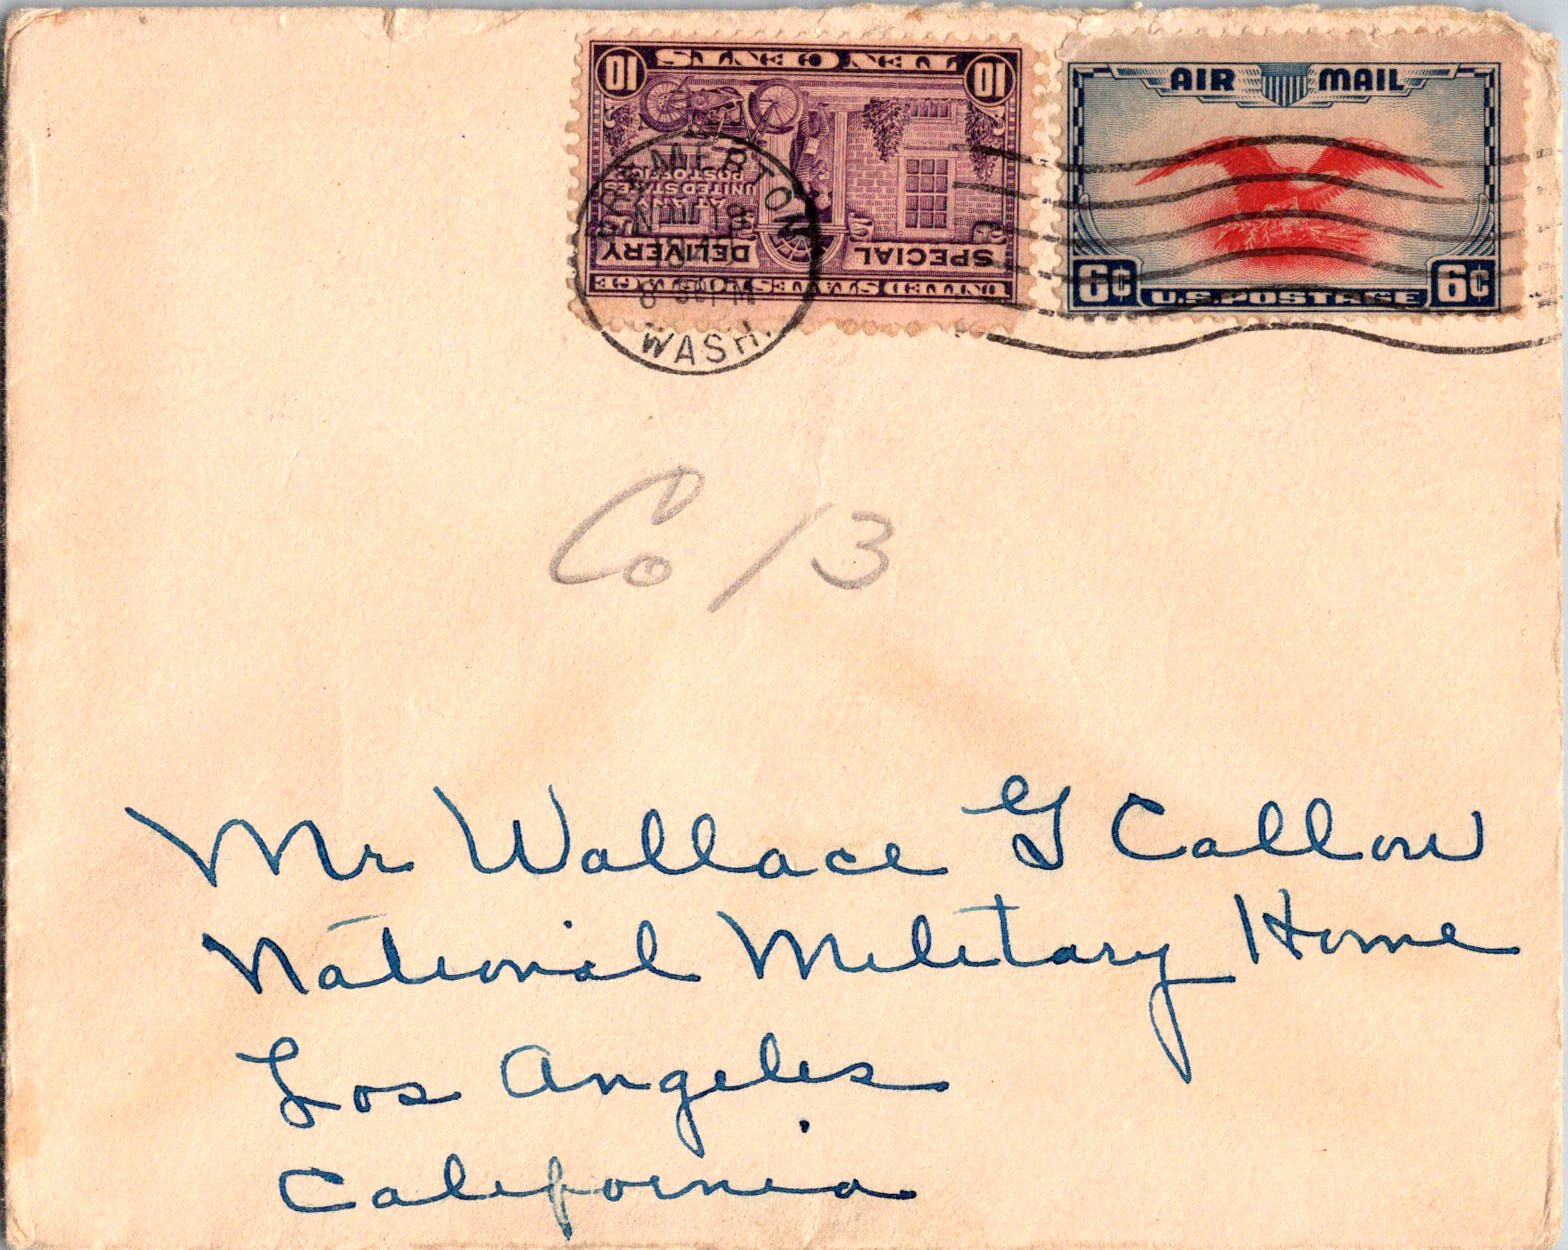 TEN CENTS
10 10
UNITED STATES
POSTOFFICE
SPECIAL DELIVERY
UNITED STATES POSTAGE
AIR MAIL
6¢ U.S. POSTAGE 6¢
BREMERTON
WASH.
Co / 3
Mr Wallace G Callow
National Military Home
Los Angeles
California